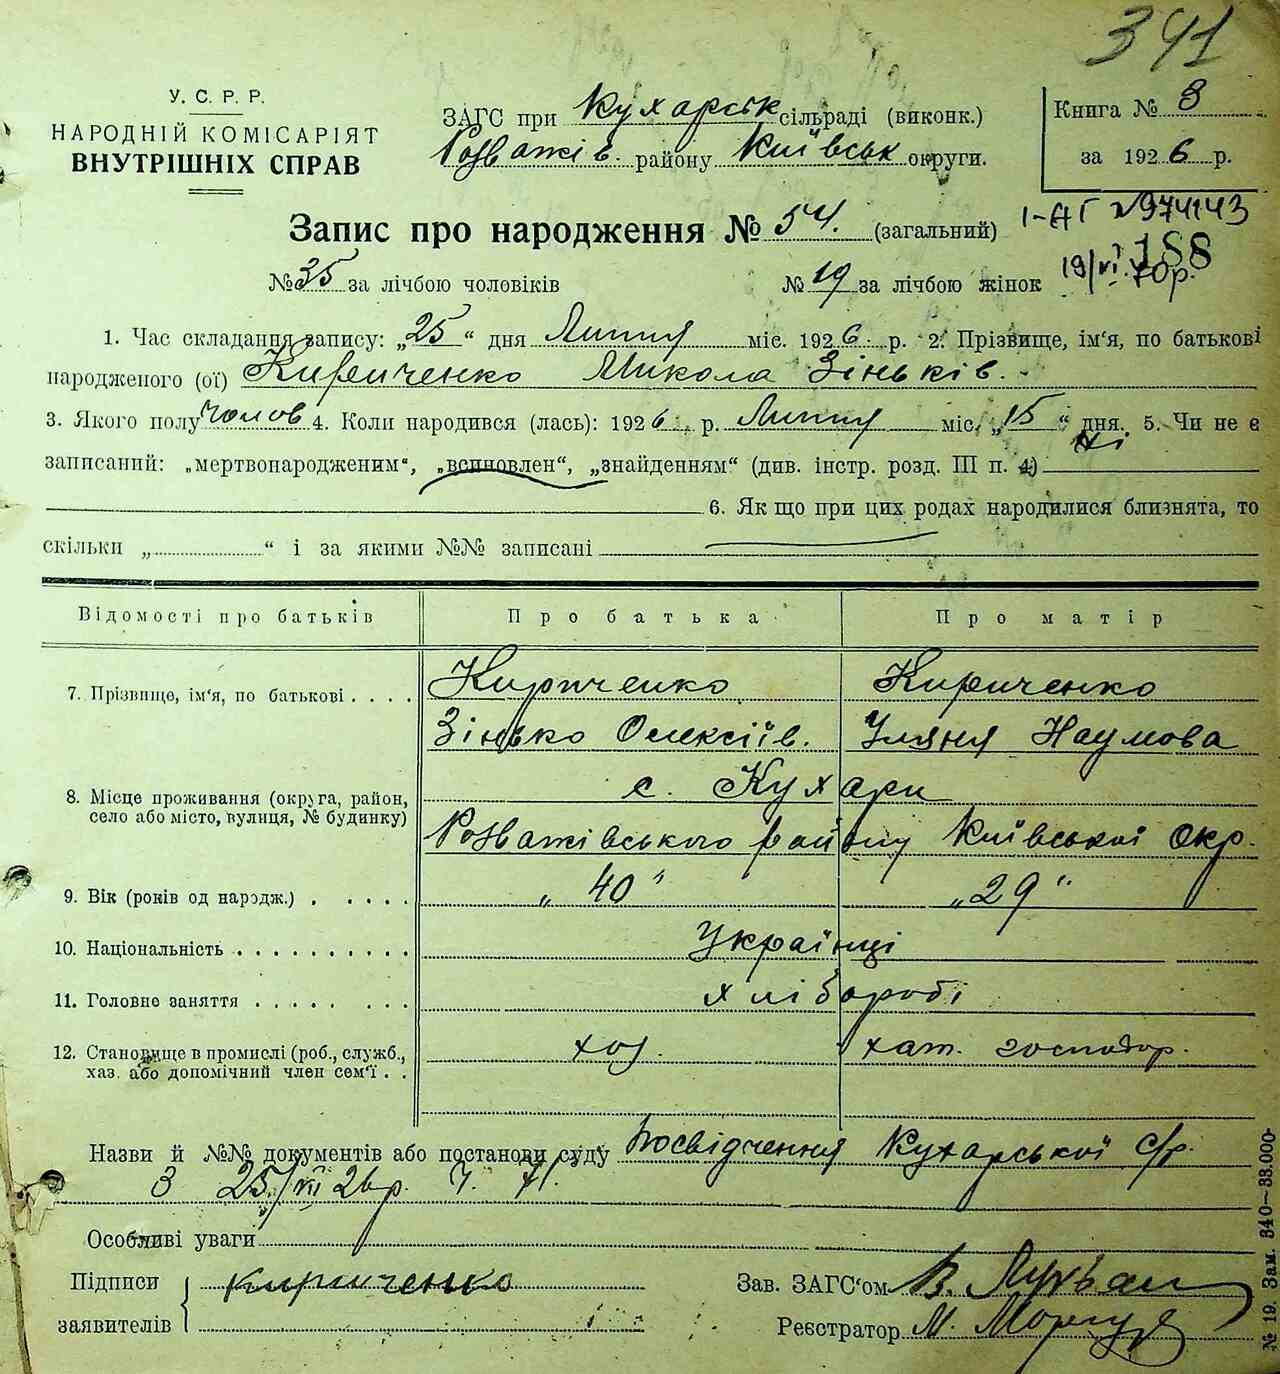 341
У. С. Р. Р.
НАРОДНІЙ КОМІСАРІЯТ
ВНУТРІШНІХ СПРАВ
ЗАГС при Кухарськ сільраді (виконк.)
Розважів. району Київськ округи.
Книга № 3
за 1926 р.
Запис про народження № 54. (загальний)
1-АГ №974143
188
19/VI 70р.
№ 35 за лічбою чоловіків № 19 за лічбою жінок
1. Час складання запису: „25“ дня Липня міс. 1926 р. 2. Прізвище, ім'я, по батькові
народженого (ої) Кириченко Микола Зіньків.
3. Якого полу чолов 4. Коли народився (лась): 1926 р. Липня міс. „15“ дня. 5. Чи не є
записаний: „мертвонародженим“, „всиновлен“, „знайденням“ (див. інстр. розд. III п. 4) Ні
6. Як що при цих родах народилися близнята, то
скільки „ “ і за якими №№ записані
Відомості про батьків Про батька Про матір
7. Прізвище, ім'я, по батькові . . . . Кириченко Кириченко
Зінько Олексіїв. Уляня Наумова
8. Місце проживання (округа, район, село або місто, вулиця, № будинку) с. Кухари
Розважівського району Київської Окр.
9. Вік (років од народж.) . . . . . „40“ „29“
10. Національність . . . . . . . . . . Українці
11. Головне заняття . . . . . . . . хлібороби
12. Становище в промислі (роб., служб., хаз. або допомічний член сем'ї . . хоз. хат. господар.
Назви й №№ документів або постанови суду Посвідчення Кухарської с/р.
З 25/VII 26р. Ч. 71.
Особливі уваги
Підписи Кириченко Зав. ЗАГС'ом В.
заявителів Реєстратор М.
№ 19. Зам. 340—33.000-